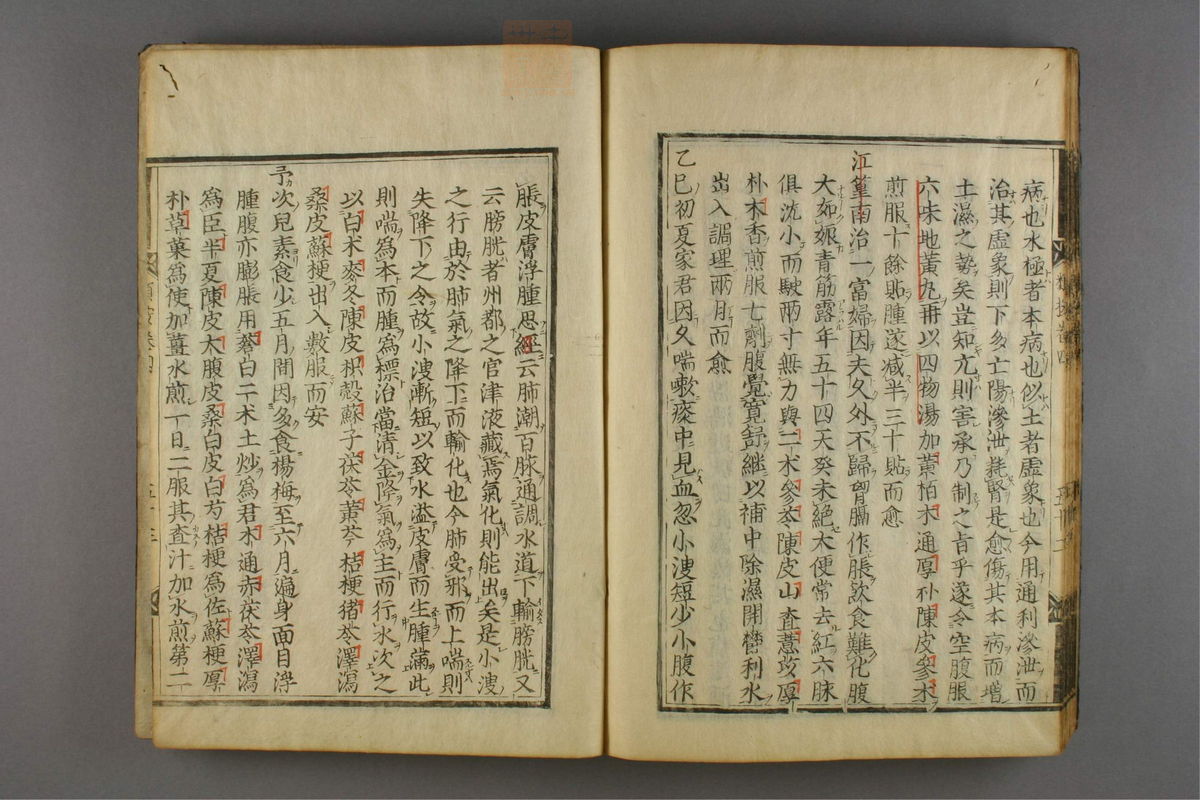 病也水極者本病也似土者虛象也今用通利滲泄而
治其虛象則下多亡陽滲泄耗腎是愈傷其本病而增
土濕之勢矣豈知亢則害承乃制之旨乎遂令空腹服
六味地黃丸再以四物湯加黃栢木通厚朴陳皮參朮
煎服十餘貼腫遂減半三十貼而愈
江篁南治一富婦因夫久外不歸胷膈作脹飲食難化腹
大如娠青筋露年五十四天癸未絕大便常去紅六脉
俱沈小而駛兩寸無力與二朮參苓陳皮山查薏苡厚
朴木香煎服七劑腹覺寛舒繼以補中除濕開鬱利水
出入調理兩月而愈
乙巳初夏家君因久喘嗽痰中見血忽小溲短少小腹作
脹皮膚浮腫思經云肺潮百脉通調水道下輸膀胱又
云膀胱者州都之官津液藏焉氣化則能出矣是小溲
之行由於肺氣之降下而輸化也今肺受邪而上喘則
失降下之令故小溲漸短以致水溢皮膚而生腫滿此
則喘為本而腫為標治當清金降氣為主而行水次之
以白朮麥冬陳皮枳殼蘇子茯苓黃芩桔梗猪苓澤瀉
桑皮蘇梗出入數服而安
予次兒素食少五月間因多食楊梅至六月遍身面目浮
腫腹亦膨脹用蒼白二朮土炒為君木通赤茯苓澤瀉
為臣半夏陳皮大腹皮桑白皮白芍桔梗為佐蘇梗厚
朴草菓為使加薑水煎一日二服其査汁加水煎第二